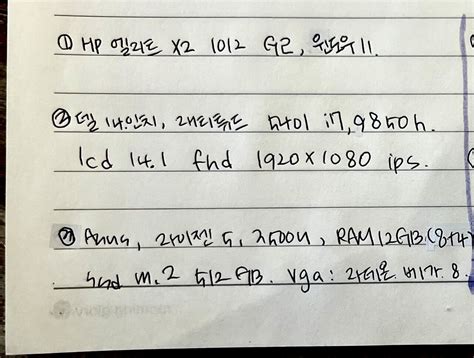 ① HP 엘리트 X2 1012 G2, 윈도우 11.
② 델 14인치, 래티튜드 5401 i7, 9850h.
lcd 14.1 fhd 1920×1080 ips.
③ Asus, 라이젠 5, 3500U, RAM 12GB (8+4)
ssd m.2 512GB. vga: 라데온. 베가. 8.